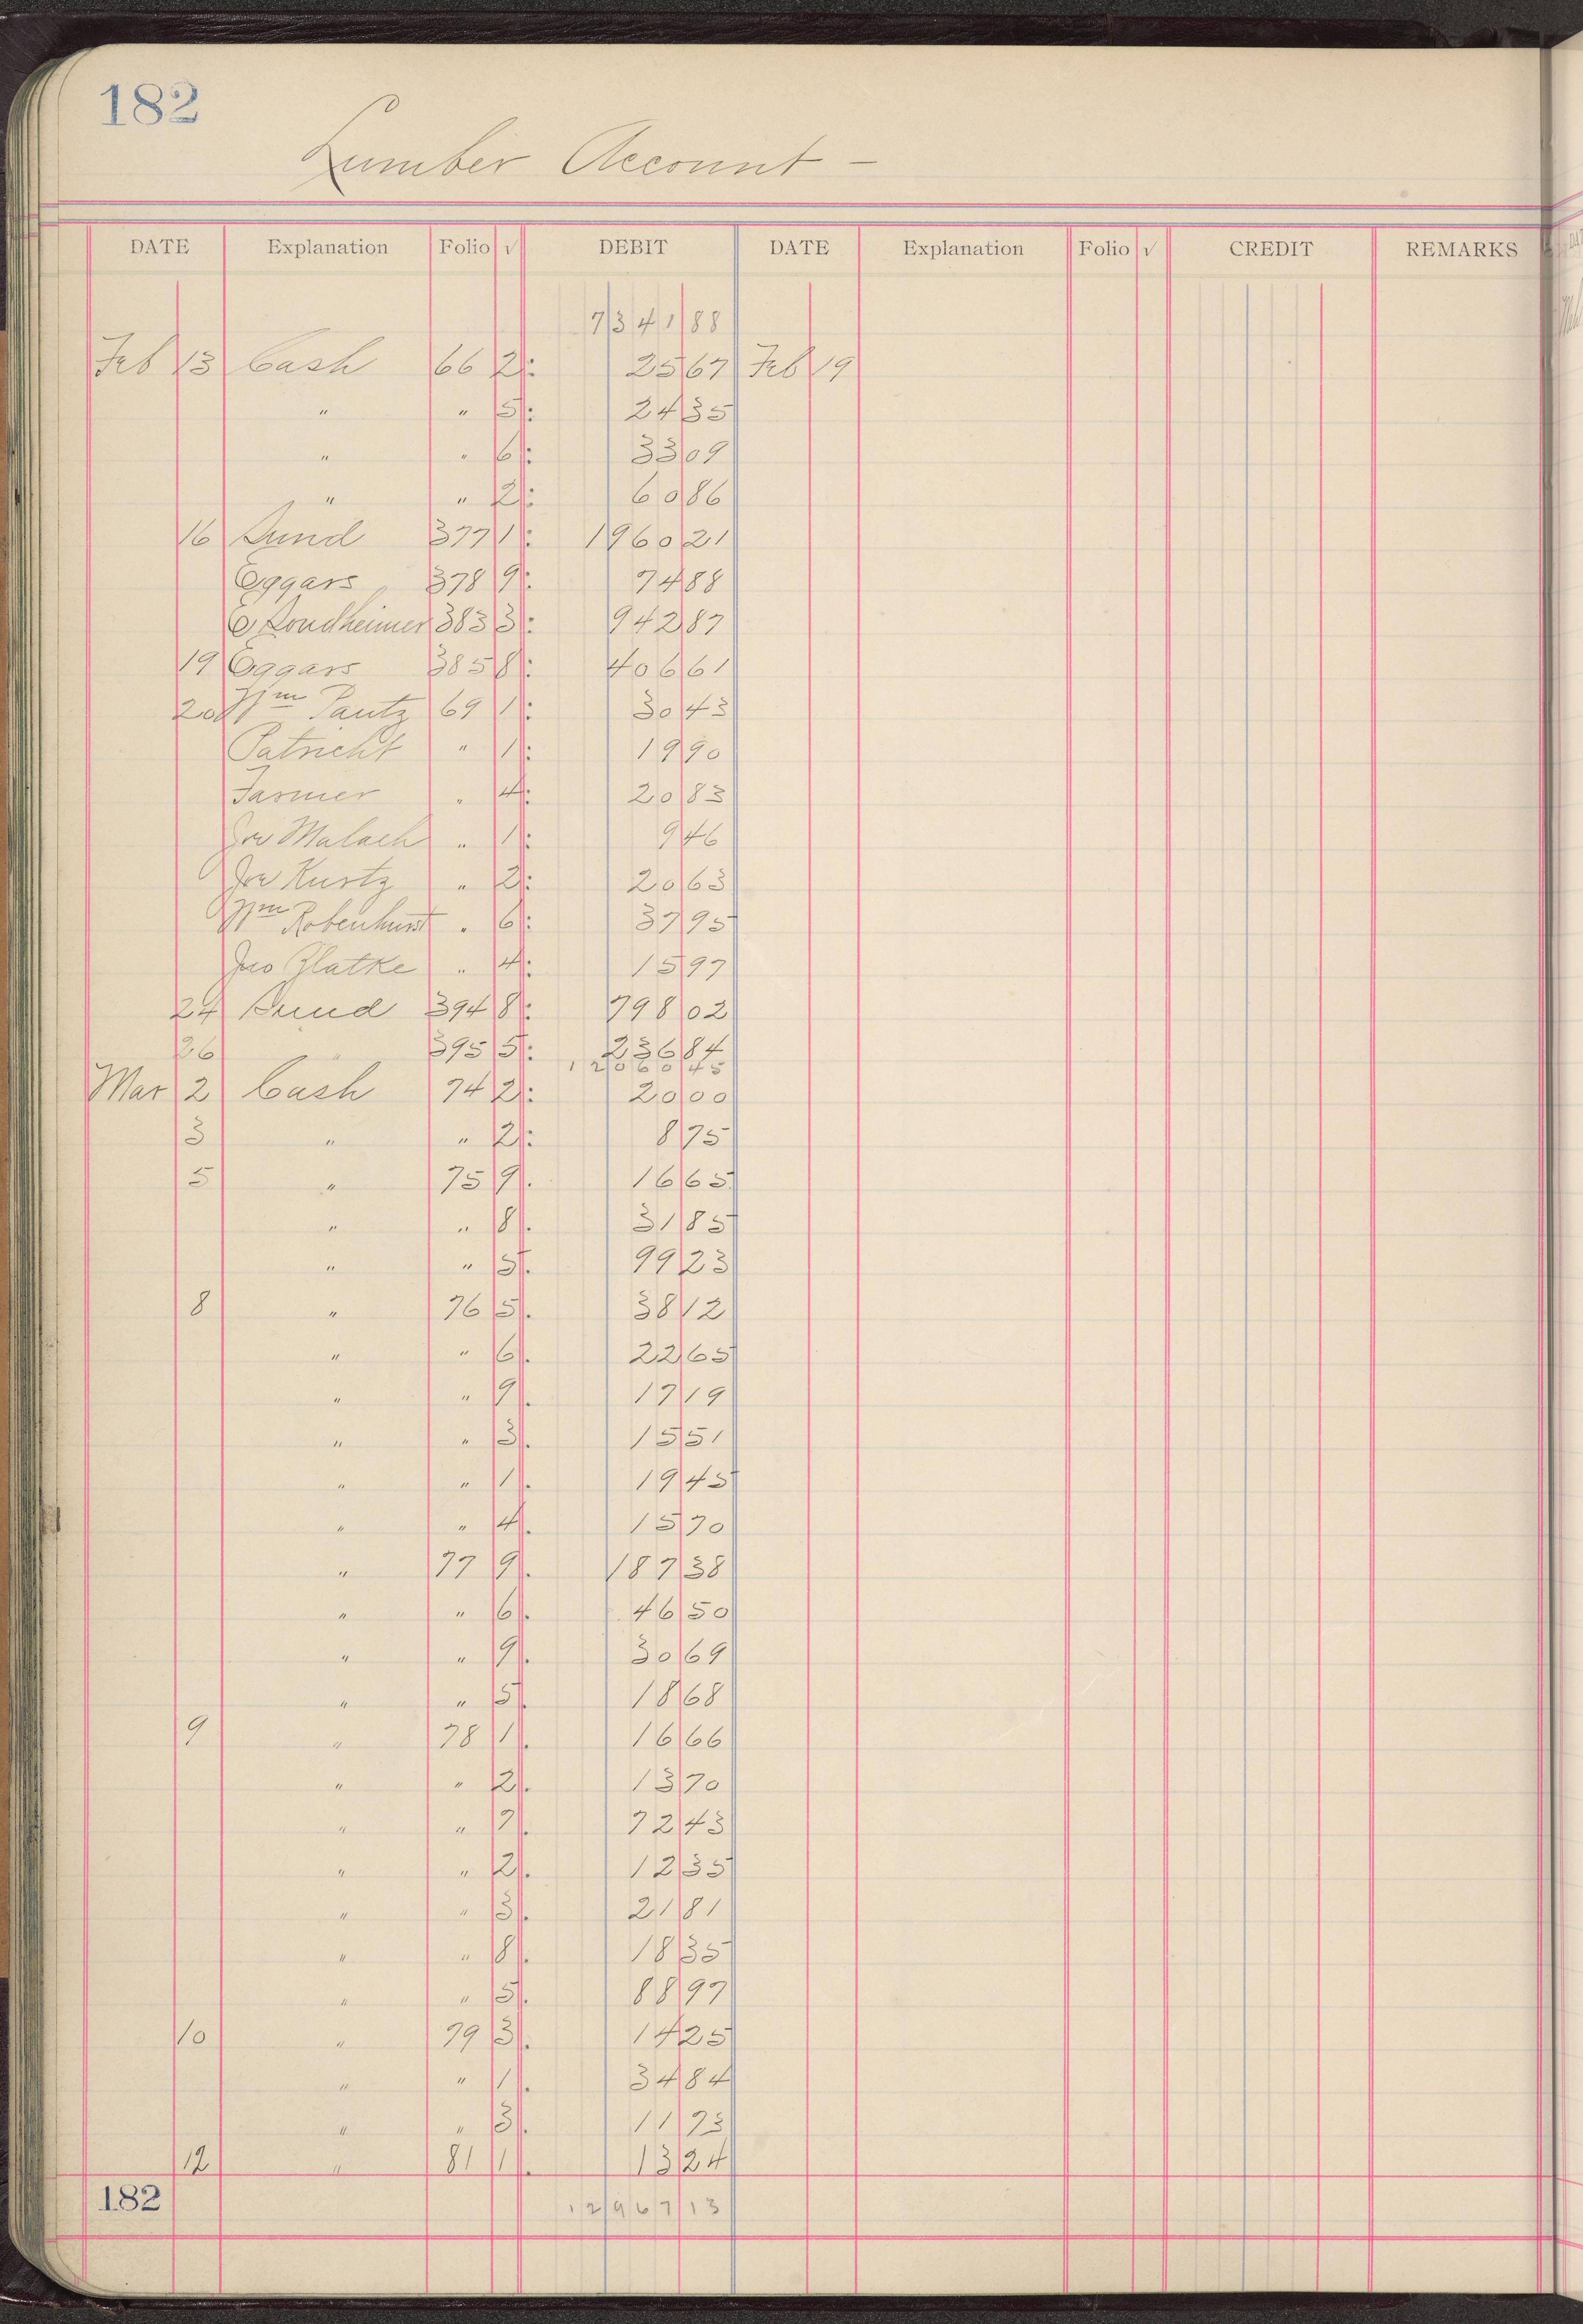 182
Lumber Account —
DATE Explanation Folio √ DEBIT DATE Explanation Folio √ CREDIT REMARKS
7341 88
Feb 13 Cash 66 2: 25 67 Feb 19
" " 5: 24 35
" " 6: 33 09
" " 2: 60 86
16 Sund 377 1: 1960 21
Eggars 378 9: 74 88
E Sondheimer 383 3: 942 87
19 Eggars 385 8: 406 61
20 Wm Pautz 69 1: 30 43
Patricht " 1: 19 90
Farmer " 4: 20 83
Joe Malach " 1: 9 46
Joe Kurtz " 2: 20 63
Wm Robenhurst " 6: 37 95
Jno Zlatke " 4: 15 97
24 Sund 394 8: 798 02
26 " 395 5: 236 84
12060 45
Mar 2 Cash 74 2: 20 00
3 " " 2: 8 75
5 " 75 9. 16 65
" " 8. 31 85
" " 5. 99 23
8 " 76 5. 38 12
" " 6. 22 65
" " 9. 17 19
" " 3. 15 51
" " 1. 19 45
" " 4. 15 70
" 77 9. 187 38
" " 6. 46 50
" " 9. 30 69
" " 5. 18 68
9 " 78 1. 16 66
" " 2. 13 70
" " 7. 72 43
" " 2. 12 35
" " 3. 21 81
" " 8. 18 35
" " 5. 88 97
10 " 79 3. 14 25
" " 1. 34 84
" " 3. 11 73
12 " 81 1. 13 24
182 12967 13